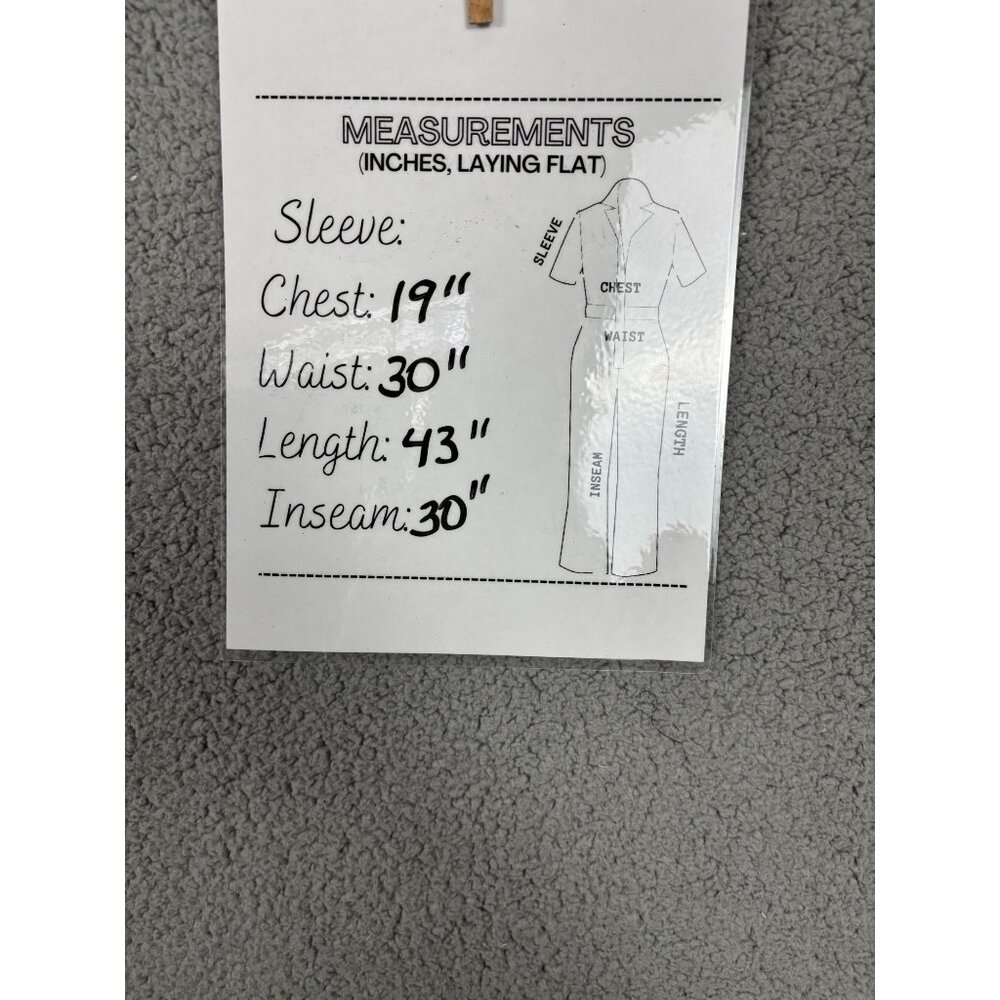 MEASUREMENTS
(INCHES, LAYING FLAT)
Sleeve:
Chest: 19"
Waist: 30"
Length: 43"
Inseam: 30"
SLEEVE
CHEST
WAIST
LENGTH
INSEAM